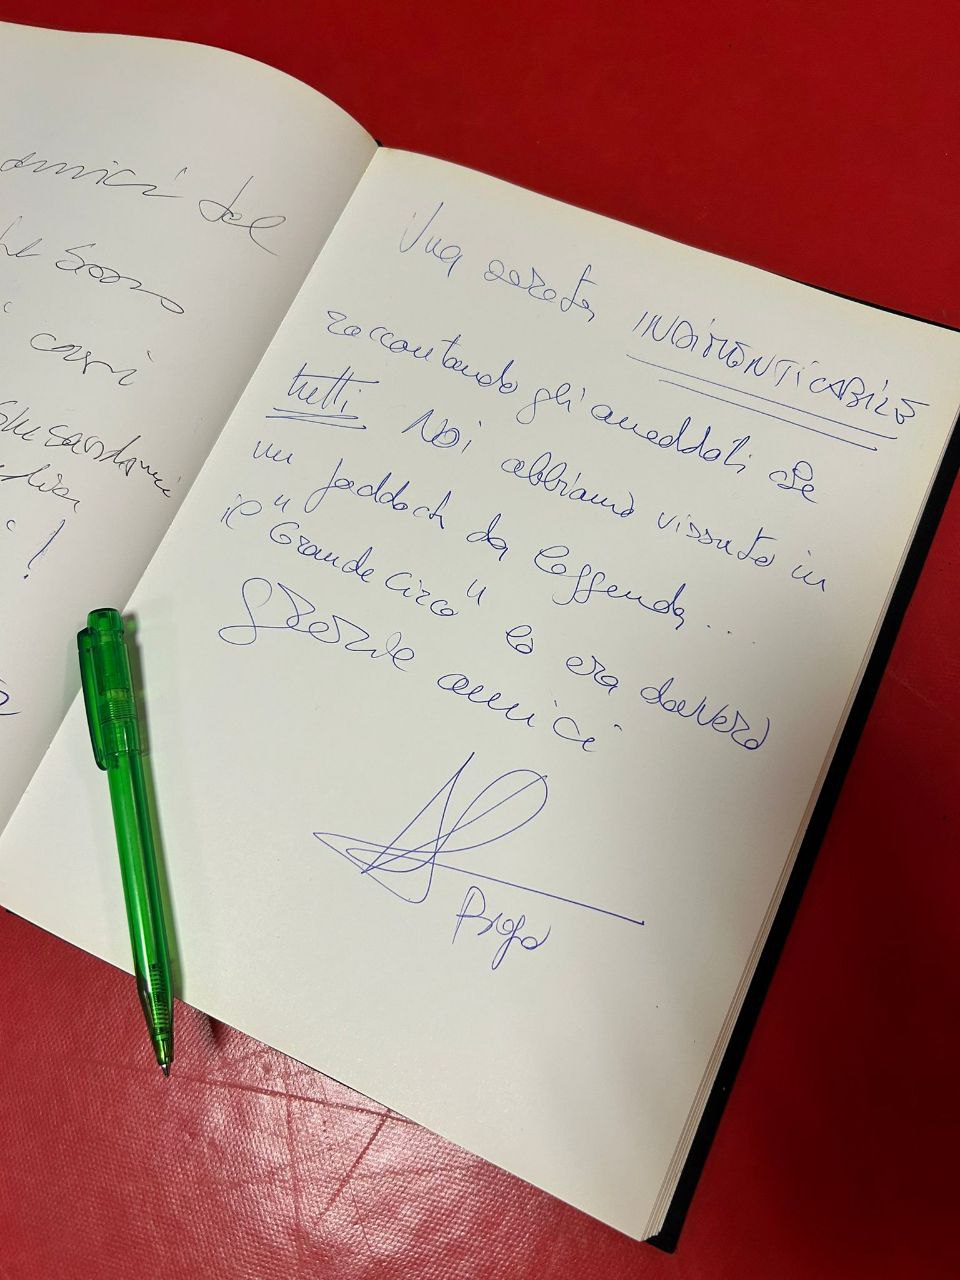 amici del
sono
corsi
!
Una serata INDIMENTICABILE
raccontando gli aneddoti che
tutti NOI abbiamo vissuto in
un paddock da leggenda....
il "Grande Circo" lo era davvero
Grazie amici